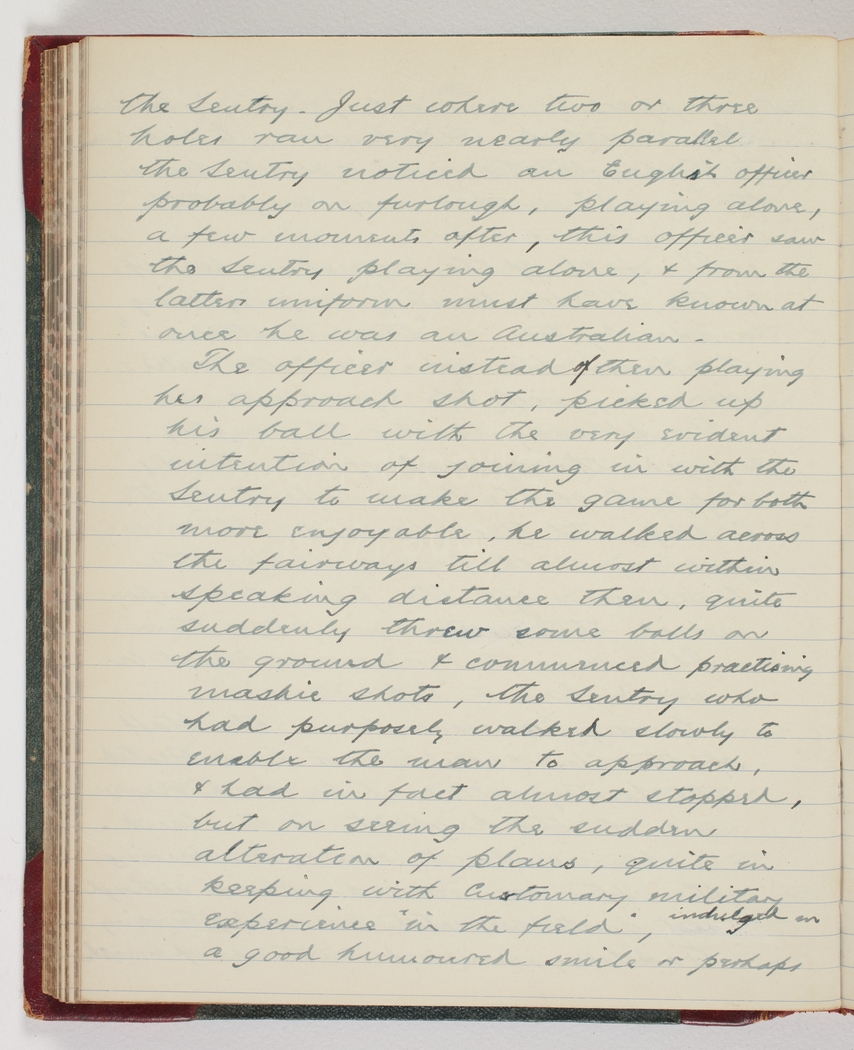 the Sentry - Just where two or three
holes ran very nearly parallel
the Sentry noticed an English officer
probably on furlough, playing alone,
a few moments after, this officer saw
the Sentry playing alone, & from the
latters uniform must have known at
once he was an Australian -
The officer instead of then playing
his approach shot, picked up
his ball with the very evident
intention of joining in with the
Sentry to make the game for both
more enjoyable, he walked across
the fairways till almost within
speaking distance then, quite
suddenly threw some balls on
the ground & commenced practising
mashie shots, the Sentry who
had purposely walked slowly to
enable the man to approach,
& had in fact almost stopped,
but on seeing the sudden
alteration of plans, quite in
keeping with Customary military
experience "in the field", indulged in
a good humoured smile or perhaps